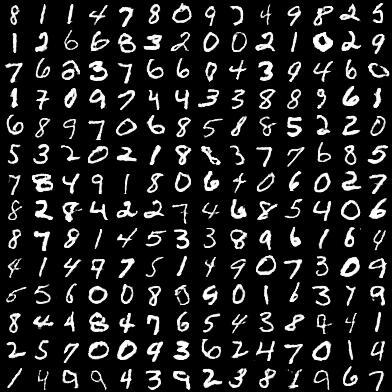 8 1 1 4 7 8 0 9 3 4 9 8 2 5
1 2 6 6 8 3 2 0 0 2 1 0 2 9
7 6 2 3 7 6 6 0 4 3 9 4 6 0
1 7 0 9 7 4 4 3 3 8 8 9 6 1
6 8 9 7 0 6 8 5 8 8 5 2 2 0
5 3 2 0 2 1 8 8 3 7 7 6 8 5
7 8 4 9 1 8 0 6 4 0 6 0 2 7
8 2 8 4 2 2 7 4 6 8 5 4 0 6
8 7 8 1 4 5 3 3 8 9 6 1 6 4
4 1 4 9 7 5 1 4 9 0 7 3 0 9
5 5 6 0 0 8 0 9 0 1 6 3 7 9
8 4 4 8 4 7 6 5 4 3 8 9 4 1
2 5 7 0 0 9 3 6 2 4 7 0 1 9
1 4 9 9 4 3 9 2 3 8 7 9 6 7